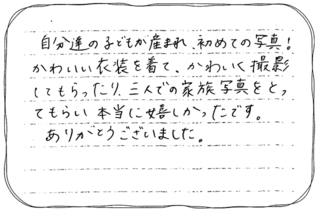 自分達の子どもが産まれ、初めての写真!
かわいい衣装を着て、かわいく撮影
してもらったり、三人での家族写真をとっ
てもらい本当に嬉しかったです。
ありがとうございました。